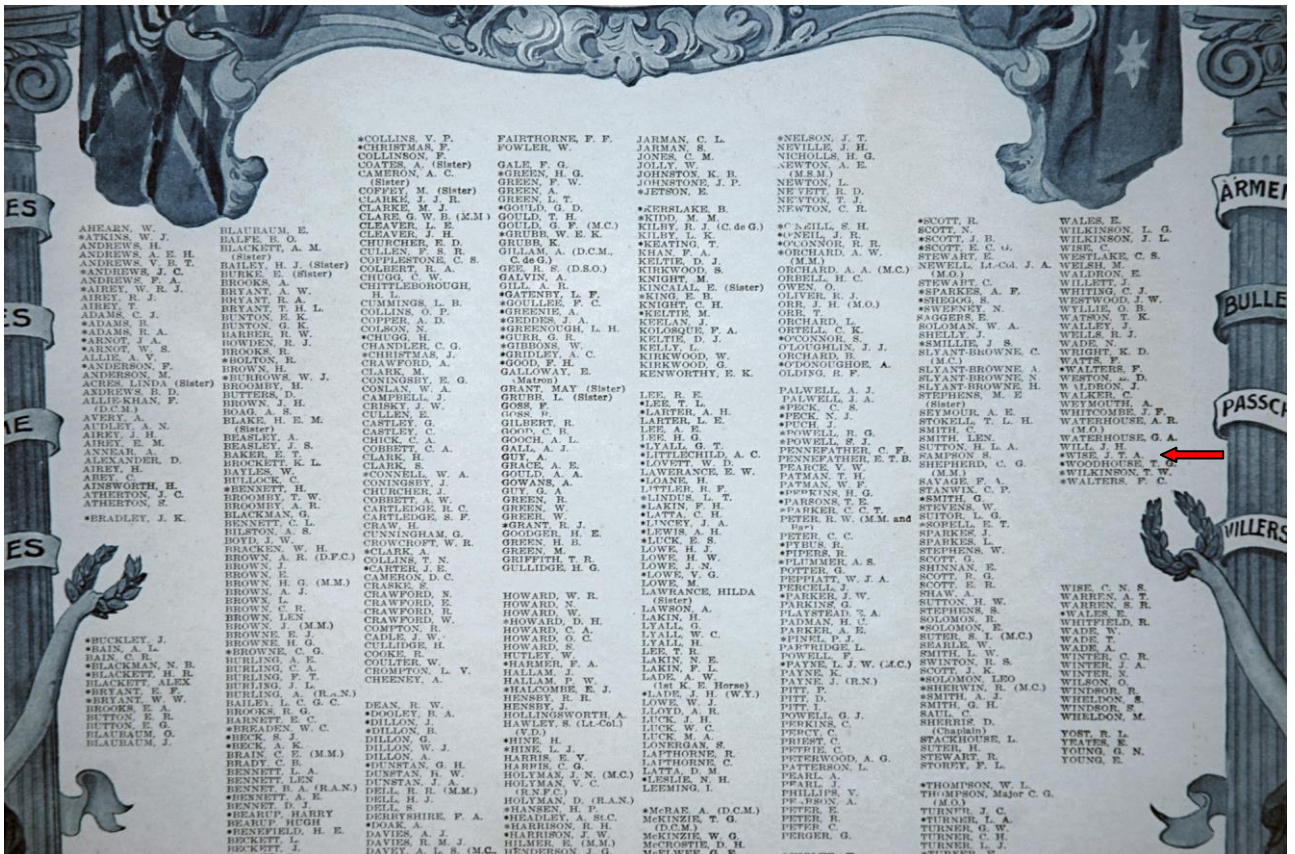 ES
S
ME
ES
AHEARN, W.
*ATKINS, W. J.
ANDREWS, H.
ANDREWS, A. E. H.
ANDREWS, V. B. T.
*ANDREWS, J. C.
ANDREWS, F. A.
*AIREY, W. R. J.
AIREY, R. J.
AIREY, T.
ADAMS, C. J.
*ADAMS, B.
*ADAMS, R. A.
*ARNOT, J. A.
*ARNOT, W. S.
ALLIE, A. V.
*ANDERSON, F.
ANDERSON, M.
ACRES, LINDA (Sister)
ANDREWS, B. D.
ALLIE-KHAN, F.
(D.C.M.)
AVERY, A.
AUDLEY, A. N.
AIREY, J. H.
AIREY, E. M.
ANNEAR, A.
ALEXANDER, D.
AIREY, H.
ABEY, C.
AINSWORTH, H.
ATHERTON, J. C.
ATHERTON, S.
*BRADLEY, J. K.
*BUCKLEY, J.
*BAIN, A. L.
BAIN, C. R.
*BLACKMAN, N. B.
*BLACKETT, H. R.
BLACKETT, ALEX
*BRYANT, E. F.
*BRYANT, W. W.
BROOKS, E. A.
BUTTON, E. R.
BUTTON, E. G.
BLAUBAUM, O.
BLAUBAUM, J.
BLAUBAUM, E.
BALFE, B. O.
BLACKETT, A. M.
(Sister)
BAILEY, H. J. (Sister)
BURKE, E. (Sister)
BROOKS, A.
BRYANT, A. W.
BRYANT, R. A.
BRYANT, T. H. L.
BUNTON, E. K.
BUNTON, G. K.
BARBER, R. W.
BOWDEN, R. J.
BROOKS, R.
*BOLTON, R.
BROWN, H.
*BURROWS, W. J.
BROOMBY, H.
BUTTERS, D.
BROWN, J. H.
BOAG, A. S.
BLAKE, H. E. M.
(Sister)
BEASLEY, A.
BEASLEY, J. S.
BAKER, E. T.
BROCKETT, K. L.
BAYLES, W.
BULLOCK, C.
*BENNETT, H.
BROOMBY, T. W.
BROOMBY, A. R.
BLACKMAN, G.
BENNETT, C. L.
BILSTON, A. S.
BOYD, J. W.
BRACKEN, W. H.
BROWN, A. R. (D.F.C.)
BROWN, J.
BROWN, E.
BROWN, H. G. (M.M.)
BROWN, A. J.
BROWN, L.
BROWN, C. R.
BROWN, LEN
BROWN, J. (M.M.)
BROWNE, E. J.
BROWNE, H. G.
*BROWNE, C. G.
BURLING, A. E.
BURLING, C. A.
BURLING, F. T.
BURLING, J. L.
BURLING, A. (R.A.N.)
BAILEY, L. C. G. C.
BROOKS, R. G.
BARNETT, E. C.
*BREADEN, W. C.
*BECK, S. J.
*BECK, A. K.
BRAIN, C. E. (M.M.)
BRADY, C. B.
BENNETT, L. A.
BENNETT, LEN
BENNET, B. A. (R.A.N.)
*BENNETT, A. E.
BENNET, D. J.
*BEARUP, HARRY
BEARUP, HUGH
*BENEFIELD, H. E.
BECKETT, L.
BECKETT, J.
*COLLINS, V. P.
*CHRISTMAS, F.
COLLINSON, F.
COATES, A. (Sister)
CAMERON, A. C.
(Sister)
COFFEY, M. (Sister)
CLARKE, J. J. R.
CLARKE, M. J.
CLARE, G. W. B. (M.M)
CLEAVER, L. E.
CLEAVER, J. H.
CHURCHER, E. D.
CULLEN, F. S. R.
COPPLESTONE, C. S.
COLBERT, R. A.
CHUGG, C. W.
CHITTLEBOROUGH,
H. L.
CUMMINGS, L. B.
COLLINS, O. P.
COPPER, A. D.
COLSON, N.
*CHUGG, H.
CHANDLER, C. G.
*CHRISTMAS, J.
CRAWFORD, A.
CLARK, M.
CONINGSBY, E. G.
CONLAN, W. A.
CAMPBELL, J.
CRISKY, J. W.
CULLEN, E.
CASTLEY, G.
CASTLEY, C.
CHICK, C. A.
COBBETT, C. A.
CLARK, H.
CLARK, S.
*CONNELL, W. A.
CONINGSBY, J.
CHURCHER, J.
COBBETT, A. W.
CARTLEDGE, R. C.
CARTLEDGE, S. F.
CRAW, H.
CUNNINGHAM, G.
CROWCROFT, W. R.
*CLARK, A.
COLLINS, T. N.
*CARTER, J. E.
CAMERON, D. C.
CRASKE, S.
CRAWFORD, N.
CRAWFORD, E.
CRAWFORD, R.
CRAWFORD, W.
COMPTON, R.
CADLE, J. W.
CULLIDGE, H.
COOKE, R.
COULTER, W.
CROMPTON, L. V.
CHEENEY, A.
DEAN, R. W.
*DOOLEY, B. A.
*DILLON, J.
*DILLON, B.
DILLON, G.
DILLON, W. J.
DILLON, A.
*DUNSTAN, G. H.
DUNSTAN, R. W.
DUNSTAN, J. A.
DELL, R. R. (M.M.)
DELL, H. J.
DELL, S.
DERBYSHIRE, F. A.
*DOAK, A.
DAVIES, A. J.
DAVIES, R. M. J.
DAVEY, A. L. S. (M.C.,
FAIRTHORNE, F. F.
FOWLER, W.
GALE, F. G.
*GREEN, H. G.
GREEN, F. W.
GREEN, A.
GREEN, L. T.
*GOULD, G. D.
GOULD, T. H.
GOULD, G. F. (M.C.)
*GRUBB, W. E. K.
GRUBB, K.
GILLAM, A. (D.C.M.,
C. de G.)
GEE, R. S. (D.S.O.)
GALVIN, A.
GILL, A. R.
*GATENBY, L. F.
*GOULLEE, F. C.
*GREENIE, A.
*GEDDES, J. A.
*GREENOUGH, L. H.
*GURR, G. R.
*GIBBONS, W.
*GRIDLEY, A. C.
*GOOD, F. H.
GALLOWAY, E.
(Matron)
GRANT, MAY (Sister)
GRUBB, L. (Sister)
GOSS, F.
GOSS, B.
GILBERT, R.
GOOD, C. R.
GOOCH, A. L.
GALL, A. J.
GUY, A.
GRACE, A. E.
GOULD, A. A.
GOWANS, A.
GUY, G. A.
GREEN, R.
GREEN, W.
GREER, W.
*GRANT, R. J.
GOODGER, H. E.
GREEN, H. B.
GREEN, M.
GRIFFITH, T. R.
GULLIDGE, H. G.
HOWARD, W. R.
HOWARD, N.
HOWARD, W.
*HOWARD, D. H.
HOWARD, C. A.
HOWARD, O. C.
HOWARD, S.
HUTLEY, W.
*HARMER, F. A.
HALLAM, J.
HALLAM, P. W.
*HALCOMBE, E. J.
HENSBY, R. R.
HENSBY, J.
HOLLINGSWORTH, A.
HAWLEY, S. (Lt.-Col.)
(V.D.)
*HINE, H.
*HINE, L. J.
HARRIS, E. V.
HARRIS, C. G.
HOLYMAN, J. N. (M.C.)
HOLYMAN, V. C.
(R.N.F.C.)
HOLYMAN, D. (R.A.N.)
*HANSEN, H. P.
*HEADLEY, A. St.C.
*HARRISON, R. H.
*HARRISON, J. W.
HILMER, E. (M.M.)
HENDERSON, J. G.
JARMAN, C. L.
JARMAN, S.
JONES, C. M.
JOLLY, W.
JOHNSTON, K. B.
JOHNSTONE, J. P.
*JETSON, E.
*KERSLAKE, B.
*KIDD, M. M.
KILBY, R. J. (C. de G.)
KILBY, L. K.
*KEATING, T.
KHAN, F. A.
KELTIE, E. J.
KIRKWOOD, S.
KNIGHT, M.
KINCAIAL, E. (Sister)
*KING, E. B.
KNIGHT, C. H.
*KELTIE, M.
KEELAN, J.
KOLOSQUE, F. A.
KELTIE, D. J.
KELLY, L.
KIRKWOOD, W.
KIRKWOOD, G.
KENWORTHY, E. K.
LEE, R. E.
*LEE, T. L.
*LARTER, A. H.
LARTER, L. E.
LEE, A. E.
LEE, H. G.
*LYALL, G. T.
*LITTLECHILD, A. C.
*LOVETT, W. D.
LAWERANCE, E. W.
*LOANE, H.
LITTLER, R. F.
*LINDUS, L. T.
*LAKIN, F. H.
*LATTA, C. H.
*LINCEY, J. A.
*LEWIS, A. H.
*LUCK, E. S.
LOWE, H. J.
LOWE, H. W.
LOWE, J. N.
*LOWE, V. G.
LOWE, M.
LAWRANCE, HILDA
(Sister)
LAWSON, A.
LAKIN, H.
LYALL, G.
LYALL, W. C.
LYALL, H.
LEE, T. R.
LAKIN, N. E.
LAKIN, F. L.
LADE, A. W.
(1st K. E. Horse)
*LADE, J. H. (W.Y.)
LOWE, W. J.
LLOYD, A. R.
LUCK, J. H.
LUCK, W. C.
LUCK, M. A.
LONERGAN, S.
LAPTHORNE, R.
LAPTHORNE, C.
LATTA, D. M.
*LESLIE, N. H.
LEEMING, I.
*McRAE, A. (D.C.M.)
McKINZIE, T. G.
(D.C.M.)
McKINZIE, W. G.
McCROSTIE, D. H.
McELWEE, G. E.
*NELSON, J. T.
NEVILLE, J. H.
NICHOLLS, H. G.
NEWTON, A. E.
(M.S.M.)
NEWTON, L.
NEVETT, R. D.
NEWTON, T. J.
NEWTON, C. R.
*O'NEILL, S. H.
*O'NEIL, J. R.
*O'CONNOR, R. R.
*ORCHARD, A. W.
(M.M.)
ORCHARD, A. A. (M.C.)
ORBELL, H. C.
OWEN, O.
OLIVER, R. J.
ORR, J. H. (M.O.)
ORR, T.
ORCHARD, L.
ORTELL, C. K.
*OCONNOR, S.
O'LOUGHLIN, J. J.
ORCHARD, B.
*O'DONOUGHOE, A.
OLDING, R. F.
PALWELL, A. J.
PALWELL, J. A.
*PECK, C. S.
*PECK, N. J.
*PUCH, J.
*POWELL, R. G.
*POWELL, S. J.
PENNEFATHER, C. F.
PENNEFATHER, E. T. B.
PEARCE, V. W.
PATMAN, T. H.
PATMAN, W. F.
*PERKINS, H. G.
*PARSONS, T. E.
*PARKER, C. C. T.
PETER, R. W. (M.M. and
Bar)
PETER, C. C.
*PYBUS, R.
*PIPERS, R.
*PLUMMER, A. S.
POTTER, G.
PEPPIATT, W. J. A.
PERCELL, J.
*PARKER, J. W.
PARKINS, G.
PLAYSTEAD, Z. A.
PADMAN, H. C.
PARKER, A. E.
*PINEL, P. J.
PARTRIDGE, L.
POWELL, F.
*PAYNE, L. J. W. (M.C.)
PAYNE, K.
PAYNE, J. (R.N.)
PITT, P.
PITT, D.
PITT, I.
POWELL, G. J.
PERKINS, C.
PERCY, C.
PRIEST, C.
PETRIE, C.
PETERWOOD, A. G.
PATTERSON, L.
PEARL, A.
PEARL, J.
PHILLIPS, V.
PEARSON, A.
PETER, E.
PETER, R.
PETER, C.
PERGER, G.
*SCOTT, R.
SCOTT, N.
*SCOTT, J. B.
*SCOTT, E. C. G.
STEWART, E.
NEWELL, Lt.-Col. J. A.
STEWART, C.
*SPARKES, A. F.
*SHEGOG, S.
*SWEENEY, N.
SAGGERS, E.
SOLOMAN, W. A.
SHELLY, J.
*SMILLIE, J. S.
SLYANT-BROWNE, C.
(M.C.)
SLYANT-BROWNE, A.
SLYANT-BROWNE, N.
SLYANT-BROWNE, H.
STEPHENS, M. E
(Sister)
SEYMOUR, A. E.
STOKELL, T. L. H.
SMITH, C.
SMITH, LEN.
SUTTON, H. L. A.
SAMPSON, S.
SHEPHERD, C. G.
(M.M.)
SAVAGE, F. A.
STANWIX, C. P.
*SMITH, G.
STEVENS, W.
SUITOR, L. G.
*SORELL, E. T.
SPARKES, J.
SPARKES, L.
STEPHENS, W.
SCOTT, G.
SHINNAN, E.
SCOTT, R. G.
SCOTT, E. R.
SHAW, A.
SUTTON, H. W.
STEPHENS, S.
SOLOMON, R.
*SOLOMON, E.
SUTER, S. I. (M.C.)
SEARLE, W.
SMITH, L. W.
SWINTON, R. S.
SCOTT, J. K.
*SOLOMON, LEO
*SHERWIN, R. (M.C.)
*SMITH, A. J.
SMITH, G. H.
SAUL, C.
SHERRIS, D.
(Chaplain)
STACKHOUSE, L.
SUTER, H.
STEWART, R.
STOREY, F. L.
*THOMPSON, W. L.
THOMPSON, Major C. G.
(M.O.)
TURNER, J. C.
*TURNER, L. A.
TURNER, G. W.
TURNER, C. H.
TURNER, L. J.
WALES, E.
WILKINSON, L. G.
WILKINSON, J. L.
WISE, C.
WESTLAKE, C. S.
WELSH, M.
WALDRON, E.
WILLETT, J.
WHITING, C. J.
WESTWOOD, J. W.
WYLLIE, O. B.
WATSON, T. K.
WALLEY, J.
WELLS, R. J.
WADE, N.
WRIGHT, K. D.
WATTS, F.
*WALTERS, F.
WESTON, D.
WALDRON, J.
WALKER, C.
WEYMOUTH, A.
WHITCOMBE, J. F.
WATERHOUSE, A. R.
(M.O.)
WATERHOUSE, G. A.
WILL, J. H.
*WISE, J. T. A.
*WOODHOUSE, T. G.
*WILKINSON, T. W.
*WALTERS, F. C.
WISE, C. N. S.
WARREN, A. T.
WARREN, S. R.
*WALES, E.
WHITFIELD, R.
WADE, W.
WADE, T.
WADE, A.
WINTER, C. R.
WINTER, J. A.
WINTER, N.
WILSON, O.
WINDSOR, R.
WHELDON, S.
WINDSOR, S.
WHELDON, M.
YOST, R. L.
YEATES, E.
YOUNG, G. N.
YOUNG, E.
ARMEN
BULLE
PASSCH
VILLERS